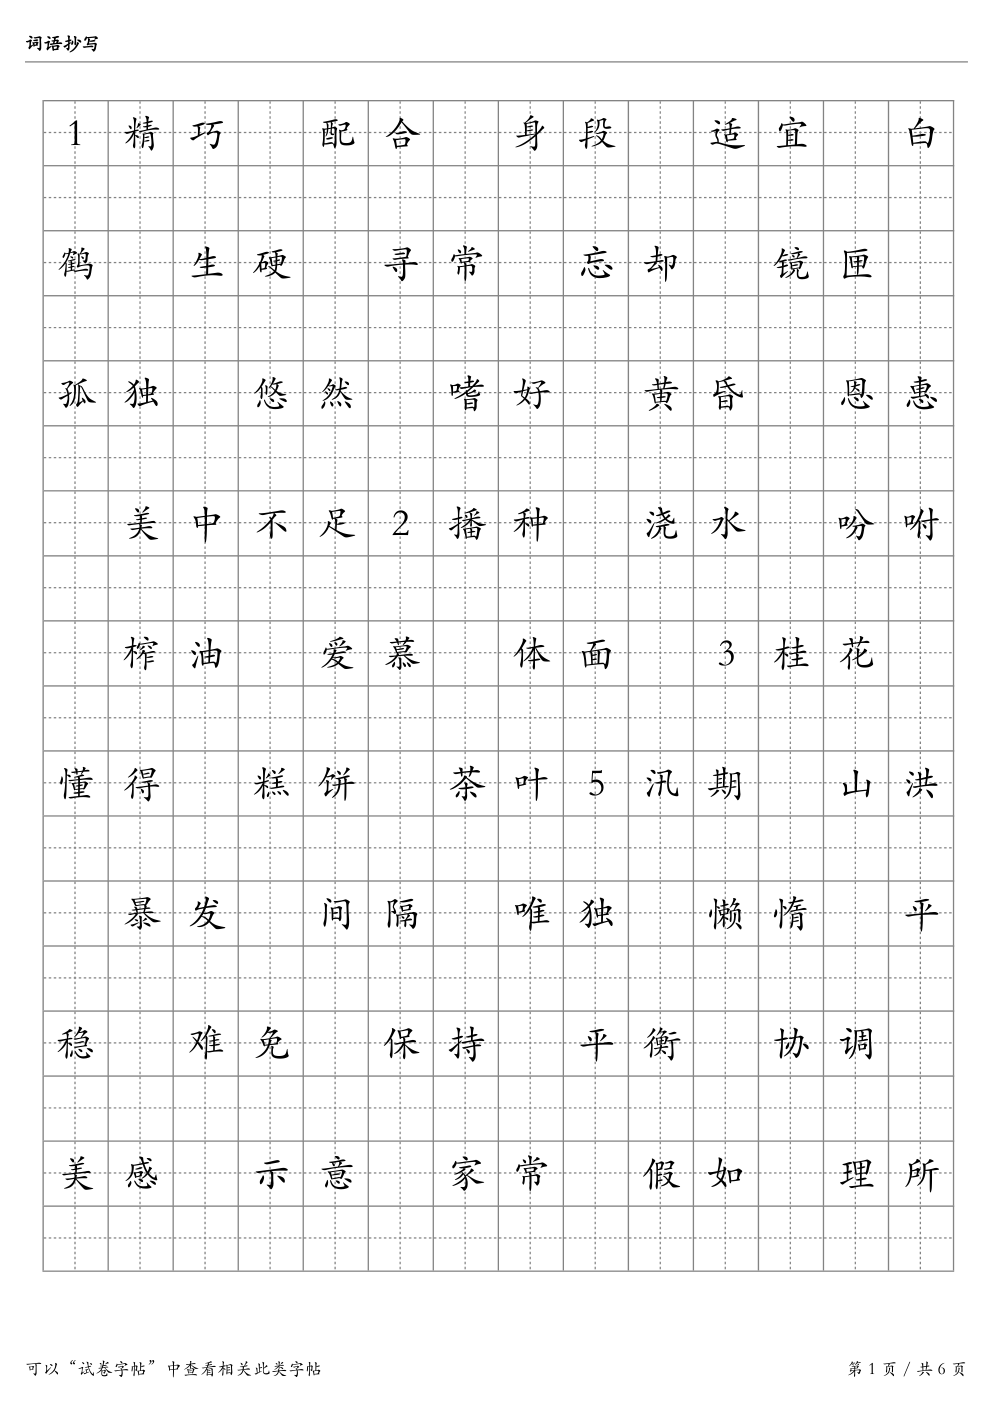 词语抄写
1精巧 配合 身段 适宜 白
鹤 生硬 寻常 忘却 镜匣
孤独 悠然 嗜好 黄昏 恩惠
美中不足2播种 浇水 吩咐
榨油 爱慕 体面 3桂花
懂得 糕饼 茶叶5汛期 山洪
暴发 间隔 唯独 懒惰 平
稳 难免 保持 平衡 协调
美感 示意 家常 假如 理所
可以“试卷字帖”中查看相关此类字帖 第 1 页 / 共 6 页